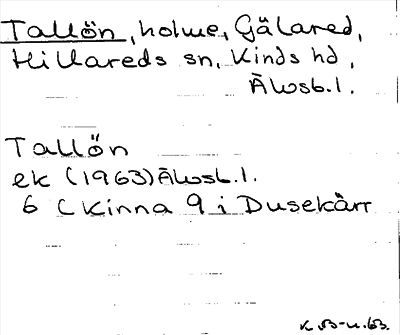 Tallön, holme, Gälared,
Hillareds sn, Kinds hd,
Älvsb. l.
Tallön
ek (1963) Älvsb. l.
6 C Kinna 9 i Dusekärr